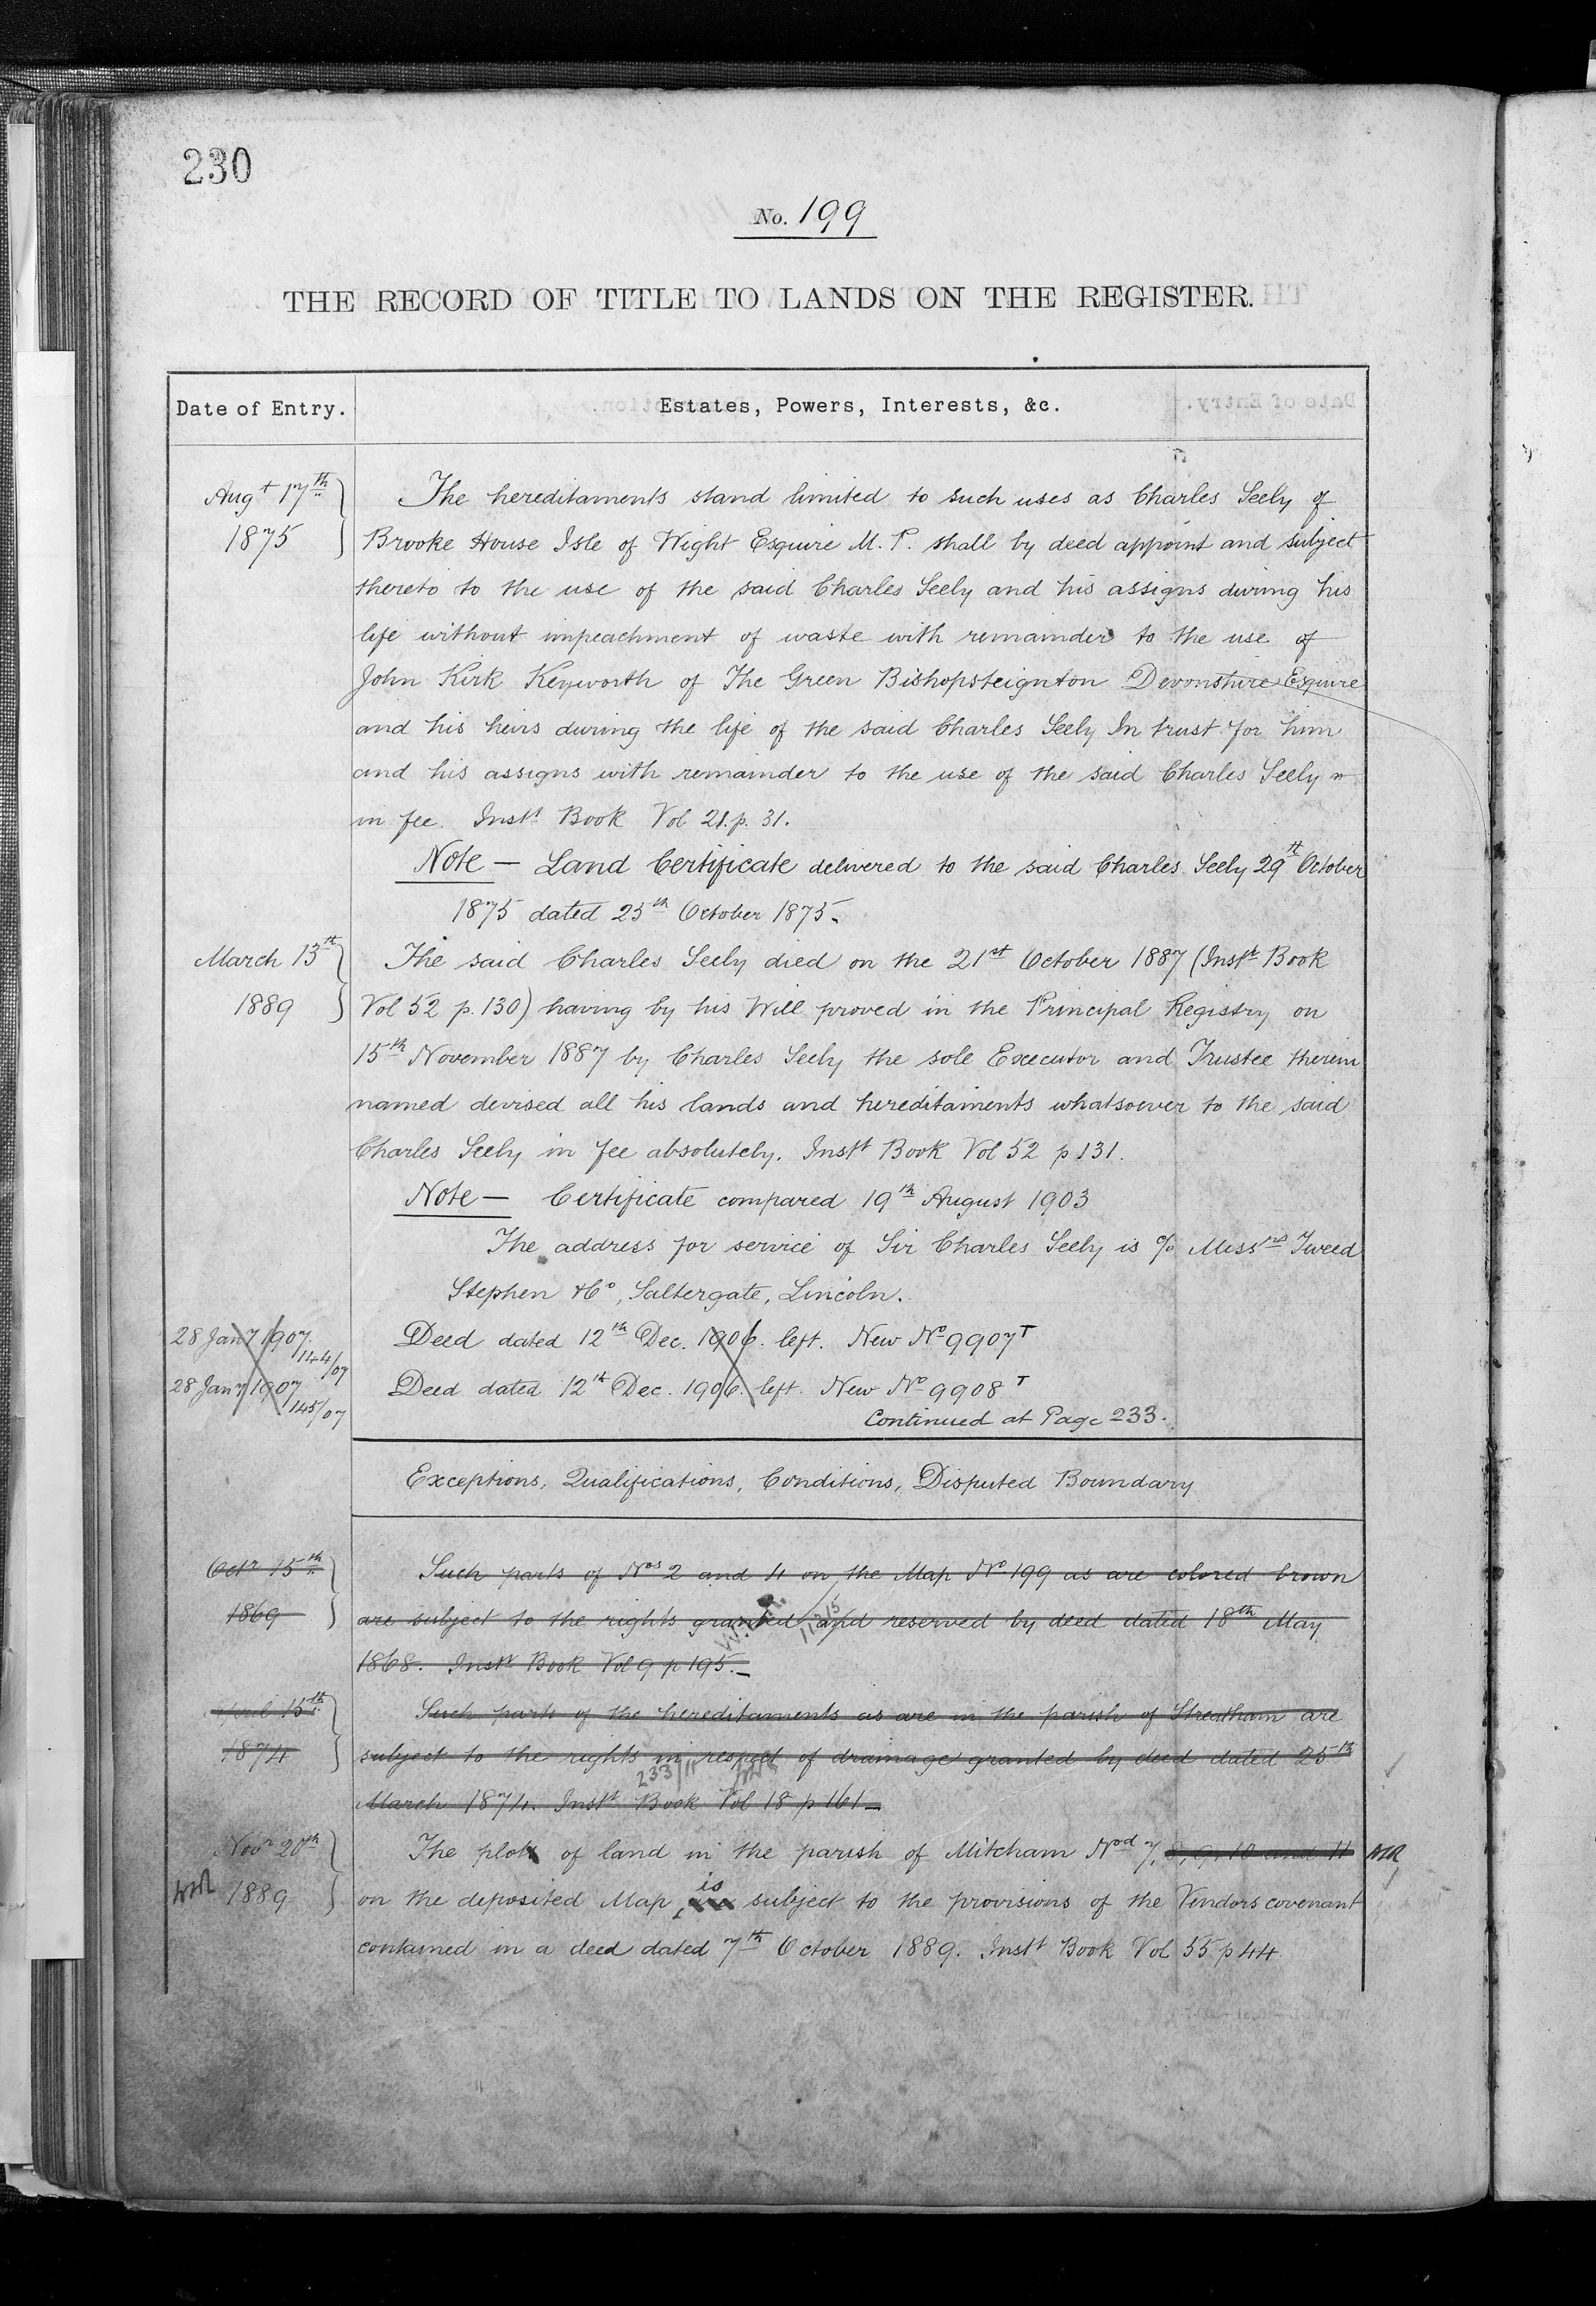 230
No. 199
THE RECORD OF TITLE TO LANDS ON THE REGISTER.
Date of Entry. Estates, Powers, Interests, &c.
Augt 17th The hereditaments stand limited to such uses as Charles Seely of
1875 Brooke House Isle of Wight Esquire M. P. shall by deed appoint and subject
thereto to the use of the said Charles Seely and his assigns during his
life without impeachment of waste with remainder to the use of
John Kirk Keyworth of The Green Bishopsteignton Devonshire Esquire
and his heirs during the life of the said Charles Seely In trust for him
and his assigns with remainder to the use of the said Charles Seely
in fee. Instt Book Vol 21. p. 31.
Note — Land Certificate delivered to the said Charles Seely 29th October
1875 dated 25th October 1875.
March 13th The said Charles Seely died on the 21st October 1887 (Instt Book
1889 Vol 52 p. 130) having by his Will proved in the Principal Registry on
15th November 1887 by Charles Seely the sole Executor and Trustee therein
named devised all his lands and hereditaments whatsoever to the said
Charles Seely in fee absolutely. Instt Book Vol 52 p 131.
Note — Certificate compared 19th August 1903
The address for service of Sir Charles Seely is c/o Messrs Tweed
Stephen & Co, Saltergate, Lincoln.
28 Jany 1907. 144/07 Deed dated 12th Dec. 1906. left. New No 9907T
28 Jany 1907 145/07 Deed dated 12th Dec. 1906. left. New No 9908T
Continued at Page 233.
Exceptions, Qualifications, Conditions, Disputed Boundary
Octr 15th Such parts of Nos 2 and 4 on the Map No 199 as are colored brown
1869 are subject to the rights granted and reserved by deed dated 18th May
1868. Instt Book Vol 9 p 195.
April 15th Such parts of the hereditaments as are in the parish of Streatham are
1874 subject to the rights in respect of drainage granted by deed dated 25th
233/11
March 1874. Instt Book Vol 18 p 161
Novr 20th The plot of land in the parish of Mitcham Nod 7, 8, 9, 10 and 11
1889 on the deposited Map is subject to the provisions of the Vendors covenant
contained in a deed dated 7th October 1889. Instt Book Vol 55 p 44